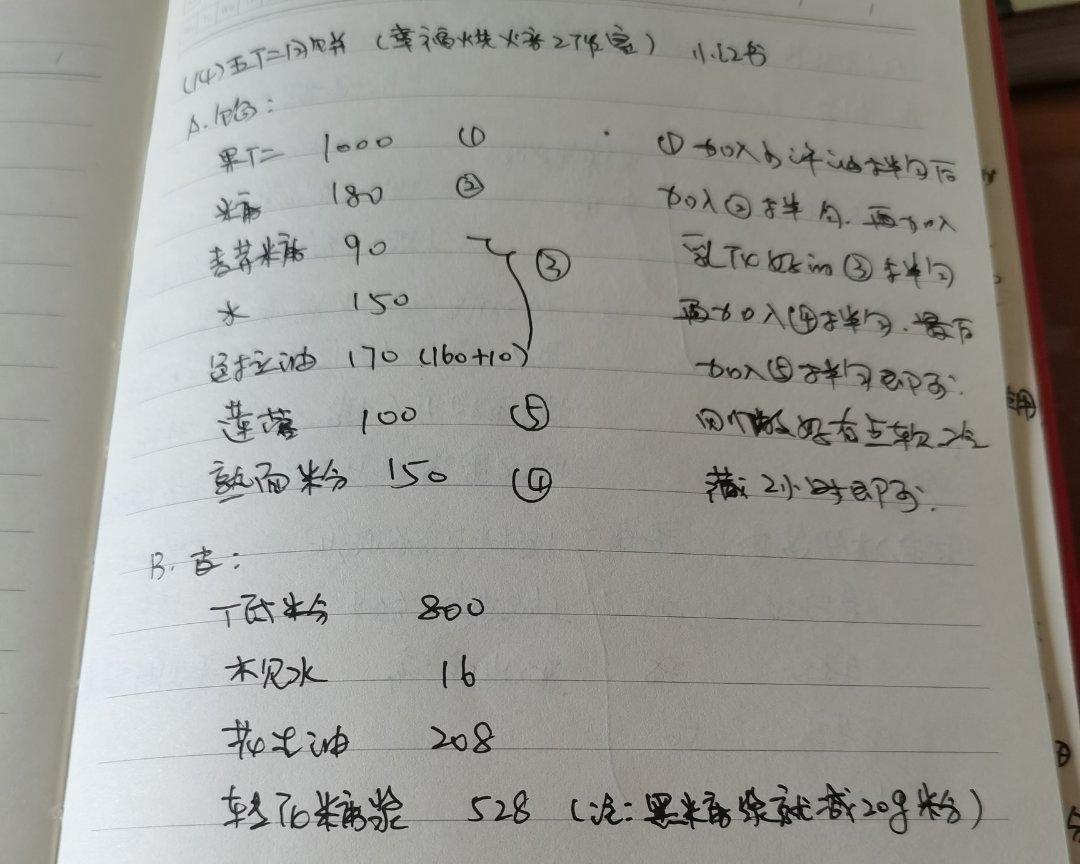 (14) 五仁月饼 (幸福烘焙工作室) 小红书
A. 馅:
果仁 1000 ①
糖 180 ②
麦芽糖 90
水 150 ③
色拉油 170 (160+10)
莲蓉 100 ⑤
熟面粉 150 ④
①加入少许油拌匀后
加入②拌匀. 再加入
乳化好的③拌匀
再加入④拌匀. 最后
加入⑤拌匀即可.
刚做好有点软冷
藏2小时即可.
B. 皮:
低粉 800
枧水 16
花生油 208
转化糖浆 528 (注: 黑糖浆就减20g粉)